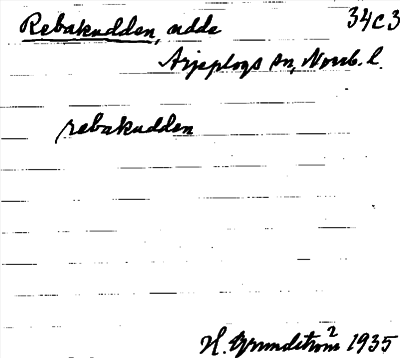 Rebakudden, udde 34C3
Arjeplogs sn, Norrb. l.
rebakudden
H. Grundström 1935